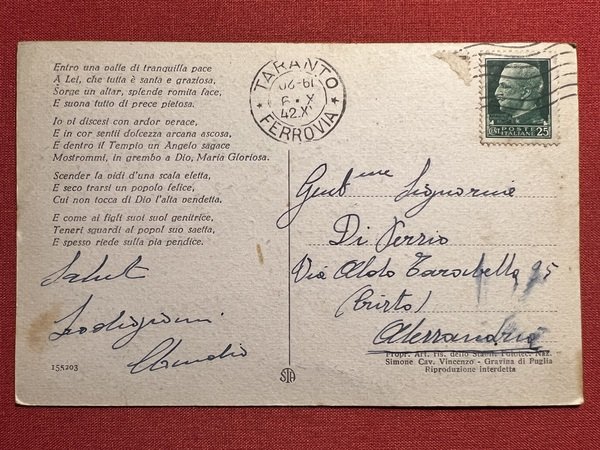 Entro una valle di tranquilla pace
A Lei, che tutta è santa e graziosa,
Sorge un altar, splende romita face,
E suona tutto di prece pietosa.
Io vi discesi con ardor verace,
E in cor sentii dolcezza arcana ascosa,
E dentro il Tempio un Angelo sagace
Mostrommi, in grembo a Dio, Maria Gloriosa.
Scender la vidi d'una scala eletta,
E seco trarsi un popolo felice,
Cui non tocca di Dio l'alta vendetta.
E come ai figli suoi suol genitrice,
Teneri sguardi al popol suo saetta,
E spesso riede sulla pia pendice.
Saluti
Claudio
155203
STA
TARANTO
19-20
6 X
42.X
FERROVIA
POSTE
ITALIANE
CENT 25
Gent.me Signorine
Di Serrio
Via Aldo 95
Alessandria
Propr. Art. ris. dello Stabil. Fototec. Naz.
Simone Cav. Vincenzo - Gravina di Puglia
Riproduzione interdetta